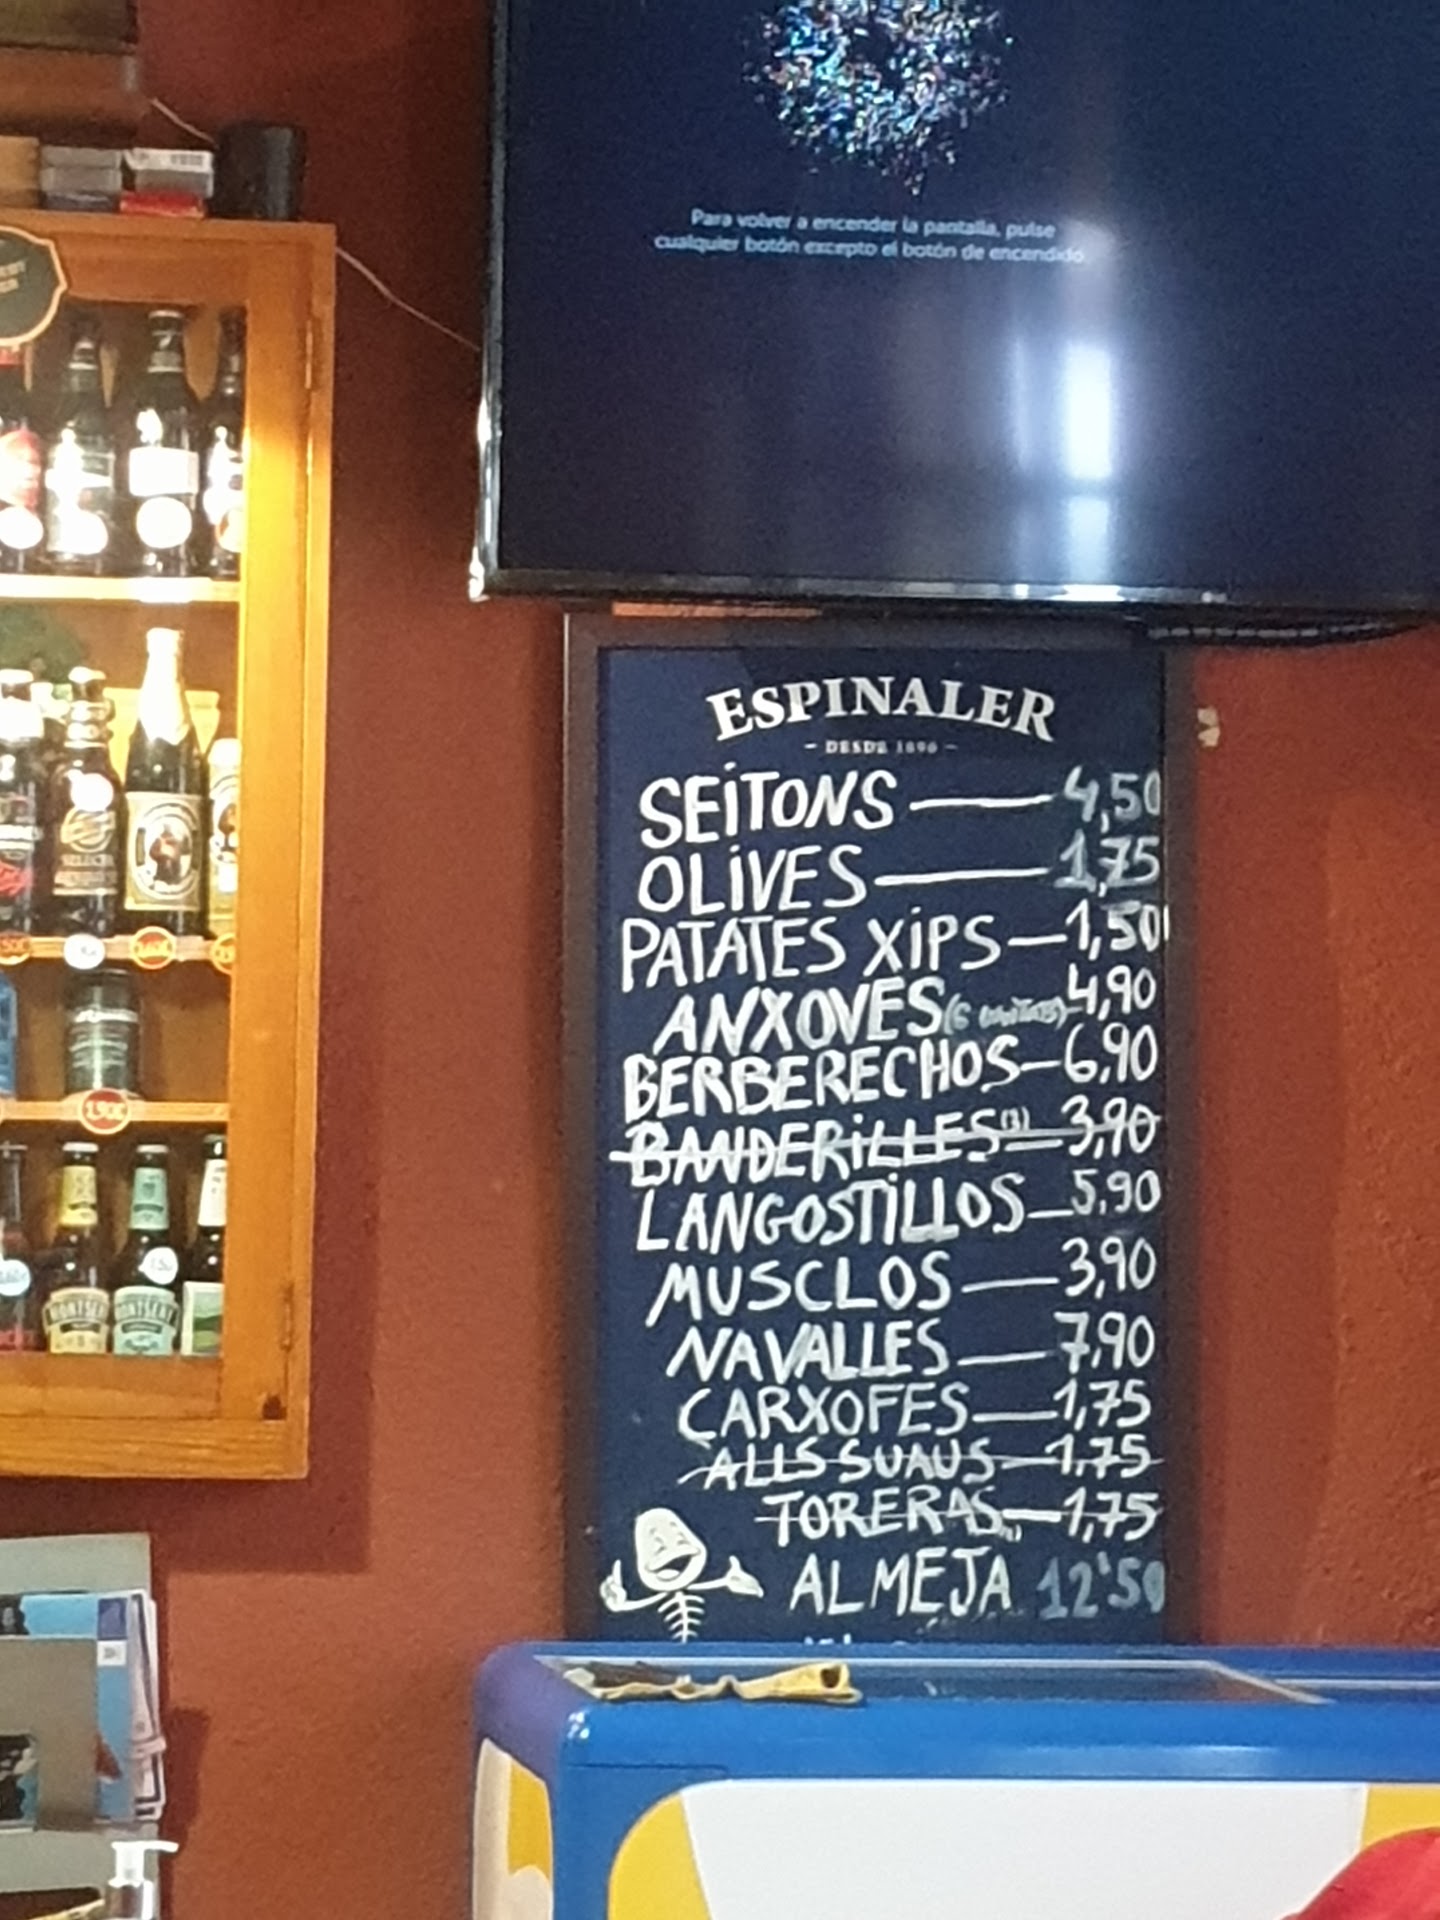 Para volver a encender la pantalla, pulse
cualquier botón excepto el botón de encendido
ESPINALER
- DESDE 1896 -
SEITONS — 4,50
OLIVES — 1,75
PATATES XIPS — 1,50
ANXOVES (6 unitats) 4,90
BERBERECHOS — 6,90
BANDERILLES (3) — 3,90
LANGOSTILLOS — 5,90
MUSCLOS — 3,90
NAVALLES — 7,90
CARXOFES — 1,75
ALLS SUAUS — 1,75
TORERAS — 1,75
ALMEJA 12'50